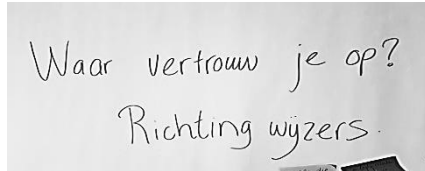 Waar vertrouw je op?
Richting wijzers.